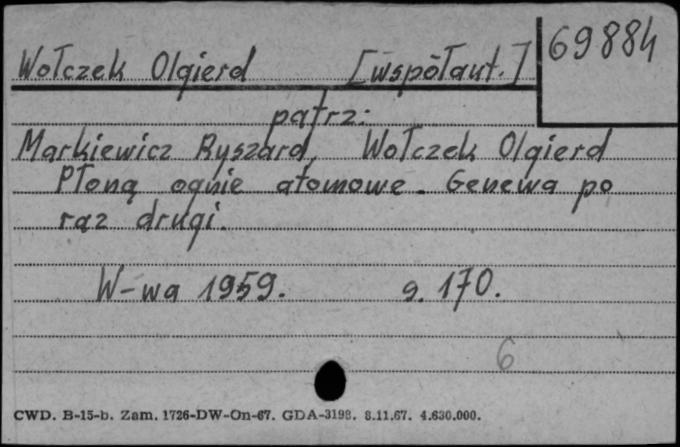 69884
Wołczek Olgierd [współaut.]
patrz:
Markiewicz Ryszard, Wołczek Olgierd
Płoną ognie atomowe. Genewa po
raz drugi.
W-wa 1959. s. 170.
6
CWD. B-15-b. Zam. 1726-DW-On-67. GDA-3198. 8.11.67. 4.630.000.